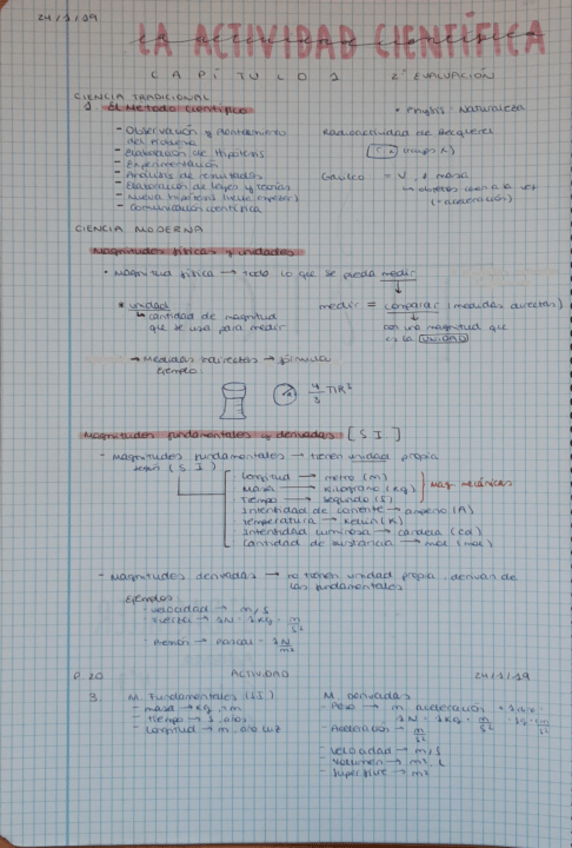 24/1/19
LA ACTIVIDAD CIENTÍFICA
la actividad científica
CAPÍTULO 1 2ª EVALUACIÓN
CIENCIA TRADICIONAL
1 El Método Científico
• Physis: Naturaleza
- Observación y planteamiento
del problema
Radioactividad de Becquerel
- Elaboración de Hipótesis
(rayos X)
- Experimentación
- Análisis de resultados
Galileo = V, masa
- Elaboración de leyes y teorías
objetos caen a la vez
- Nueva hipótesis (vuelta empezar)
(= aceleración)
- Comunicación científica
CIENCIA MODERNA
Magnitudes físicas y unidades
• Magnitud física → todo lo que se pueda medir
* unidad
medir = comparar (medidas directas)
↳ cantidad de magnitud
con una magnitud que
que se usa para medir
es la UNIDAD
→ Medidas indirectas → fórmula
Ejemplo:
4/3 πR³
Magnitudes fundamentales y derivadas [SI]
- Magnitudes fundamentales → tienen unidad propia
según (SI)
· Longitud → metro (m)
· Masa → Kilogramo (Kg)
Mag. mecánicas
· Tiempo → segundo (s)
· Intensidad de corriente → amperio (A)
· Temperatura → Kelvin (K)
· Intensidad luminosa → candela (cd)
· Cantidad de sustancia → mol (mol)
- Magnitudes derivadas → no tienen unidad propia, derivan de
las fundamentales
Ejemplos:
· velocidad → m/s
· Fuerza → 1N = 1Kg · m/s²
· Presión → Pascal = 1N/m²
P. 20 ACTIVIDAD 24/1/19
3. M. Fundamentales (SI)
- masa → Kg
- tiempo → s, años
- Longitud → m, año luz
M. Derivadas
- Peso → m aceleración
1N = 1Kg · m/s²
- Aceleración → m/s²
- Velocidad → m/s
- Volumen → m³, L
- Superficie → m²